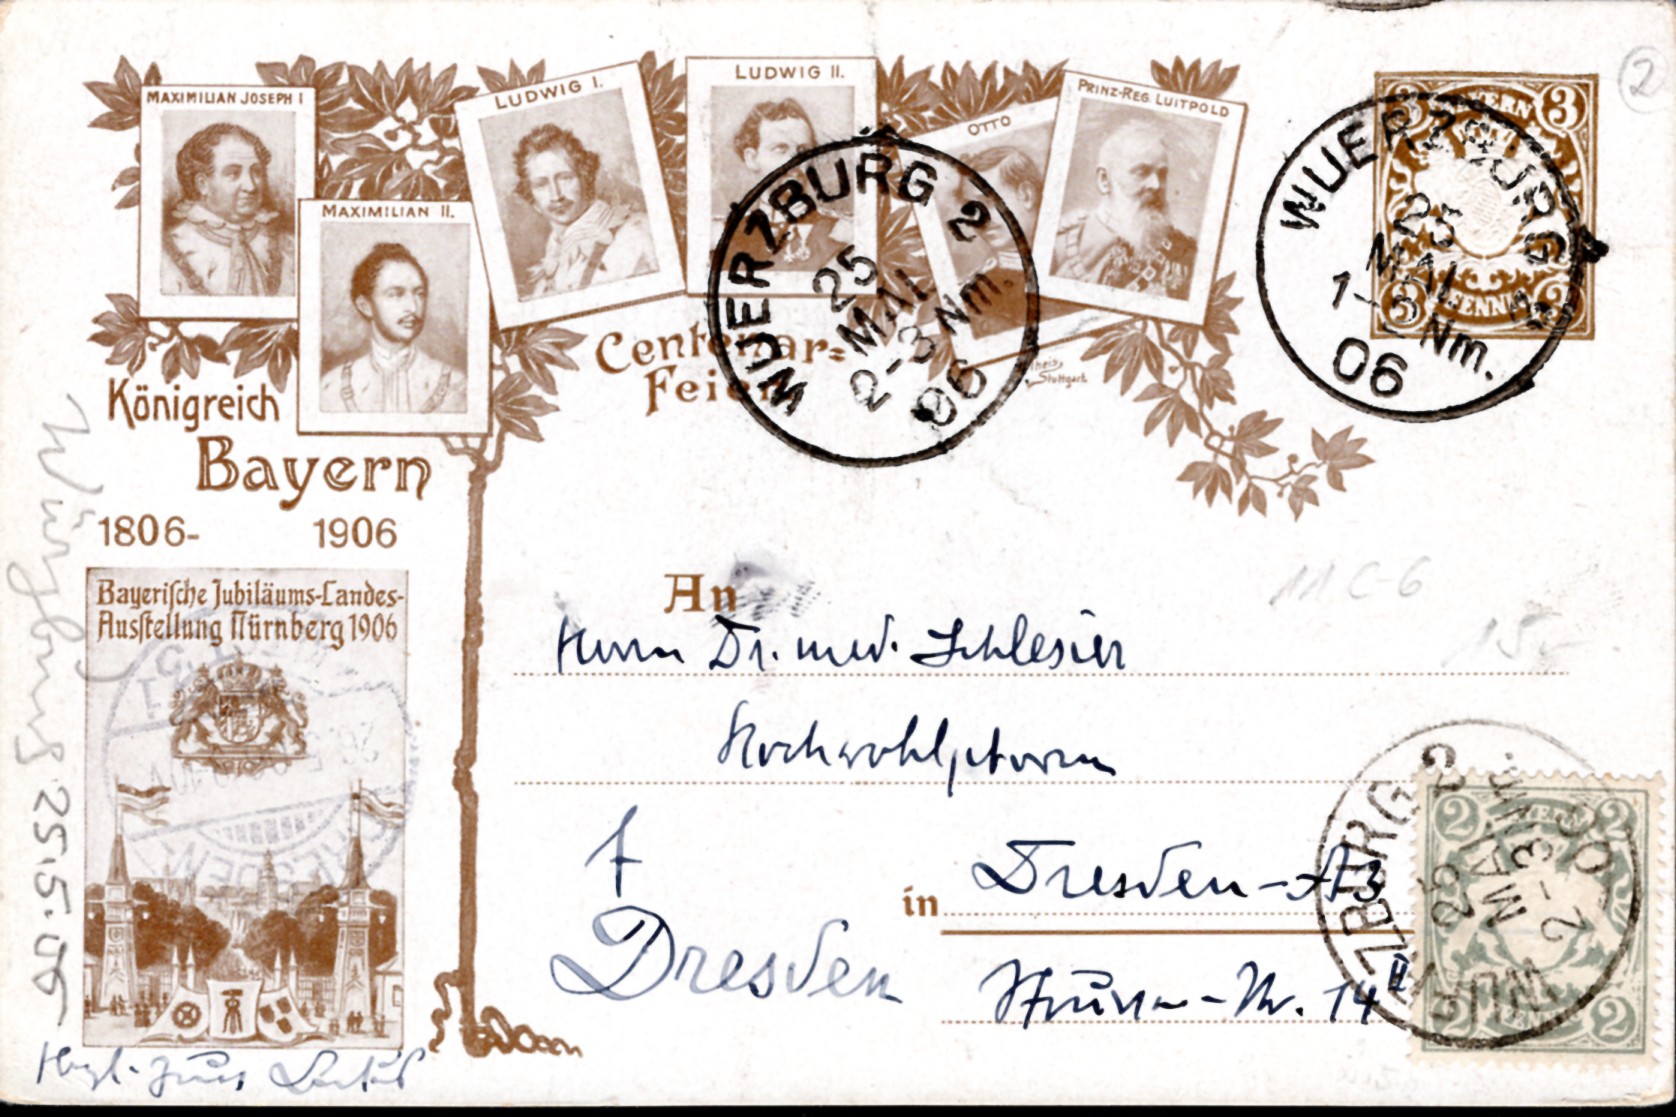 MAXIMILIAN JOSEPH I
MAXIMILIAN II.
LUDWIG I.
LUDWIG II.
OTTO
PRINZ-REG. LUITPOLD
3 BAYERN 3
3 PFENNIG 3
2
WUERZBURG 2
25
MAI
2-3 Nm.
06
WUERZBURG 2
MAI
Nm.
06
Centenar-
Feier
Stuttgart
Königreich
Bayern
1806- 1906
Bayerische Jubiläums-Landes-
Ausstellung Nürnberg 1906
DRESDEN
Würzburg 25.5.06
11 C-6
15-
An
Herrn Dr. med. Schlesier
Hochwohlgeboren
in Dresden-A 3
Dresden
-Nr. 14 II
WUERZBURG 2
25
MAI
2-3 Nm.
06
2 BAYERN 2
2 2